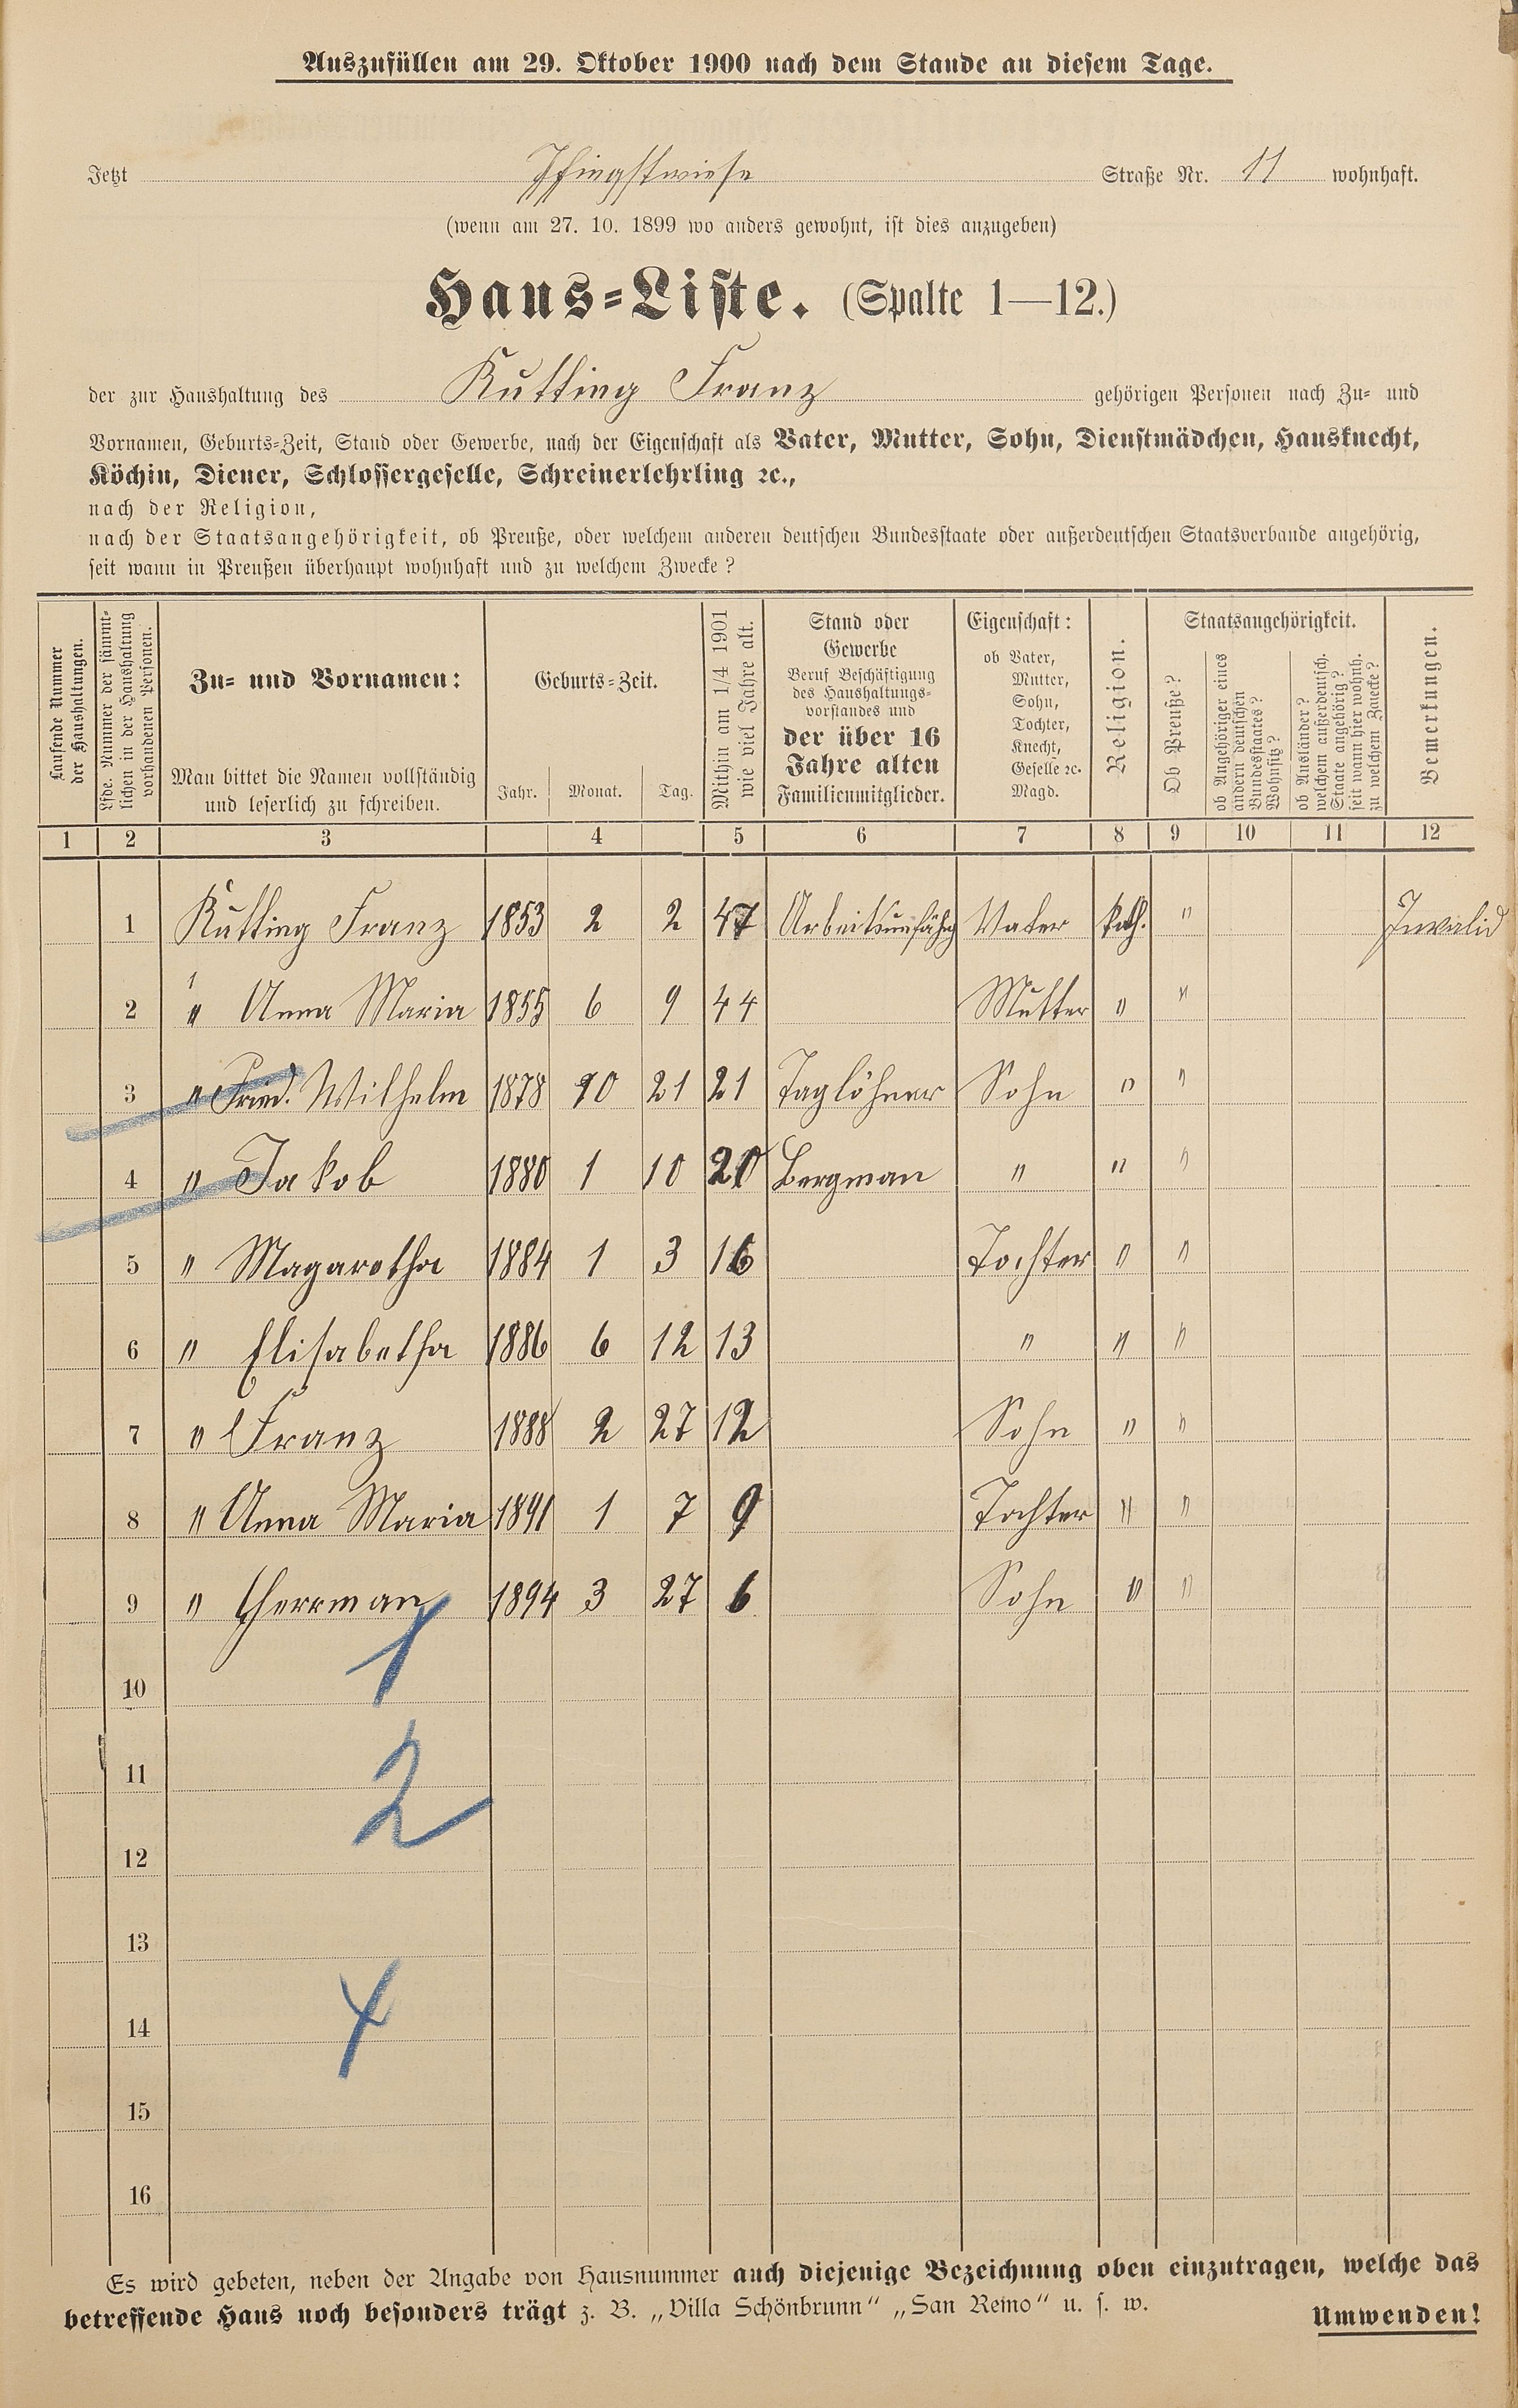 Auszufüllen am 29. Oktober 1900 nach dem Stande an diesem Tage.
Jetzt Pfingstwiese Straße Nr. 11 wohnhaft.
(wenn am 27. 10. 1899 wo anders gewohnt, ist dies anzugeben)
Haus-Liste. (Spalte 1—12.)
der zur Haushaltung des Kutting Franz gehörigen Personen nach Zu- und
Vornamen, Geburts-Zeit, Stand oder Gewerbe, nach der Eigenschaft als Vater, Mutter, Sohn, Dienstmädchen, Hausknecht,
Köchin, Diener, Schlossergeselle, Schreinerlehrling ꝛc.,
nach der Religion,
nach der Staatsangehörigkeit, ob Preuße, oder welchem anderen deutschen Bundesstaate oder außerdeutschen Staatsverbande angehörig,
seit wann in Preußen überhaupt wohnhaft und zu welchem Zwecke?
Laufende Nummer
der Haushaltungen.
Lfde. Nummer der sämmt-
lichen in der Haushaltung
vorhandenen Personen.
Zu- und Vornamen:
Man bittet die Namen vollständig
und leserlich zu schreiben.
Geburts-Zeit.
Jahr. Monat. Tag.
Mithin am 1/4 1901
wie viel Jahre alt.
Stand oder
Gewerbe
Beruf Beschäftigung
des Haushaltungs-
vorstandes und
der über 16
Jahre alten
Familienmitglieder.
Eigenschaft:
ob Vater,
Mutter,
Sohn,
Tochter,
Knecht,
Geselle ꝛc.
Magd.
Religion.
Staatsangehörigkeit.
Ob Preuße?
ob Angehöriger eines
andern deutschen
Bundesstaates?
Wohnsitz?
ob Ausländer?
welchem außerdeutsch.
Staate angehörig?
seit wann hier wohnh.
zu welchem Zwecke?
Bemerkungen.
1 2 3 4 5 6 7 8 9 10 11 12
1 Kutting Franz 1853 2 2 47 Arbeitsunfähig Vater kath. " Invalid
2 " Anna Maria 1855 6 9 44 Mutter " "
3 " Fried. Wilhelm 1878 10 21 21 Taglöhner Sohn " "
4 " Jakob 1880 1 10 20 Bergman " " "
5 " Magaretha 1884 1 3 16 Tochter " "
6 " Elisabetha 1886 6 12 13 " " "
7 " Franz 1888 2 27 12 Sohn " "
8 " Anna Maria 1891 1 7 9 Tochter " "
9 " Herrman 1894 3 27 6 Sohn " "
1
10
2
11
12
13
4
14
15
16
Es wird gebeten, neben der Angabe von Hausnummer auch diejenige Bezeichnung oben einzutragen, welche das
betreffende Haus noch besonders trägt z. B. „Villa Schönbrunn" „San Remo" u. s. w. Umwenden!